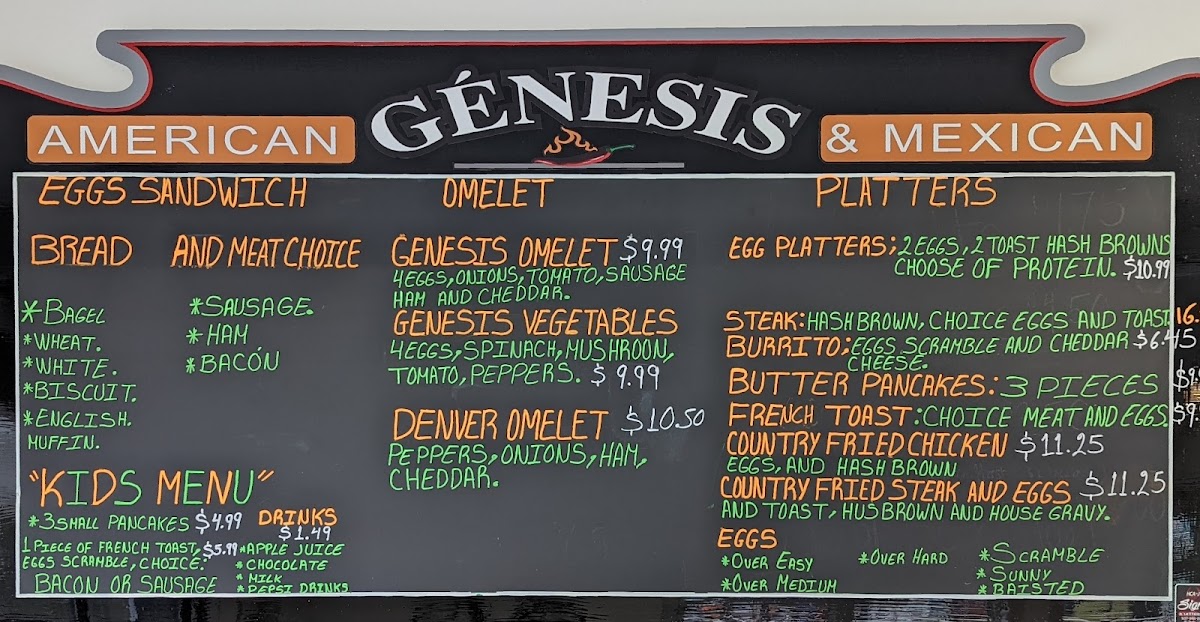 GÉNESIS
AMERICAN
& MEXICAN
EGGS SANDWICH
BREAD AND MEAT CHOICE
*BAGEL
*WHEAT.
*WHITE.
*BISCUIT.
*ENGLISH.
MUFFIN.
*SAUSAGE.
*HAM
*BACÓN
"KIDS MENU"
*3 SMALL PANCAKES $4.99
1 PIECE OF FRENCH TOAST, $5.99
EGGS SCRAMBLE, CHOICE.
BACON OR SAUSAGE
DRINKS
$1.49
*APPLE JUICE
*CHOCOLATE
*MILK
*PEPSI DRINKS
OMELET
GENESIS OMELET $9.99
4EGGS, ONIONS, TOMATO, SAUSAGE
HAM AND CHEDDAR.
GENESIS VEGETABLES
4EGGS, SPINACH, MUSHROON,
TOMATO, PEPPERS. $9.99
DENVER OMELET $10.50
PEPPERS, ONIONS, HAM,
CHEDDAR.
PLATTERS
EGG PLATTERS; 2 EGGS, 2 TOAST HASH BROWNS
CHOOSE OF PROTEIN. $10.99
STEAK: HASH BROWN, CHOICE EGGS AND TOAST 16.
BURRITO; EGGS SCRAMBLE AND CHEDDAR $6.45
CHEESE.
BUTTER PANCAKES: 3 PIECES
FRENCH TOAST: CHOICE MEAT AND EGGS. $9.
COUNTRY FRIED CHICKEN $11.25
EGGS, AND HASH BROWN
COUNTRY FRIED STEAK AND EGGS $11.25
AND TOAST, HUSBROWN AND HOUSE GRAVY.
EGGS
*OVER EASY
*OVER MEDIUM
*OVER HARD
*SCRAMBLE
*SUNNY
*BAISTED